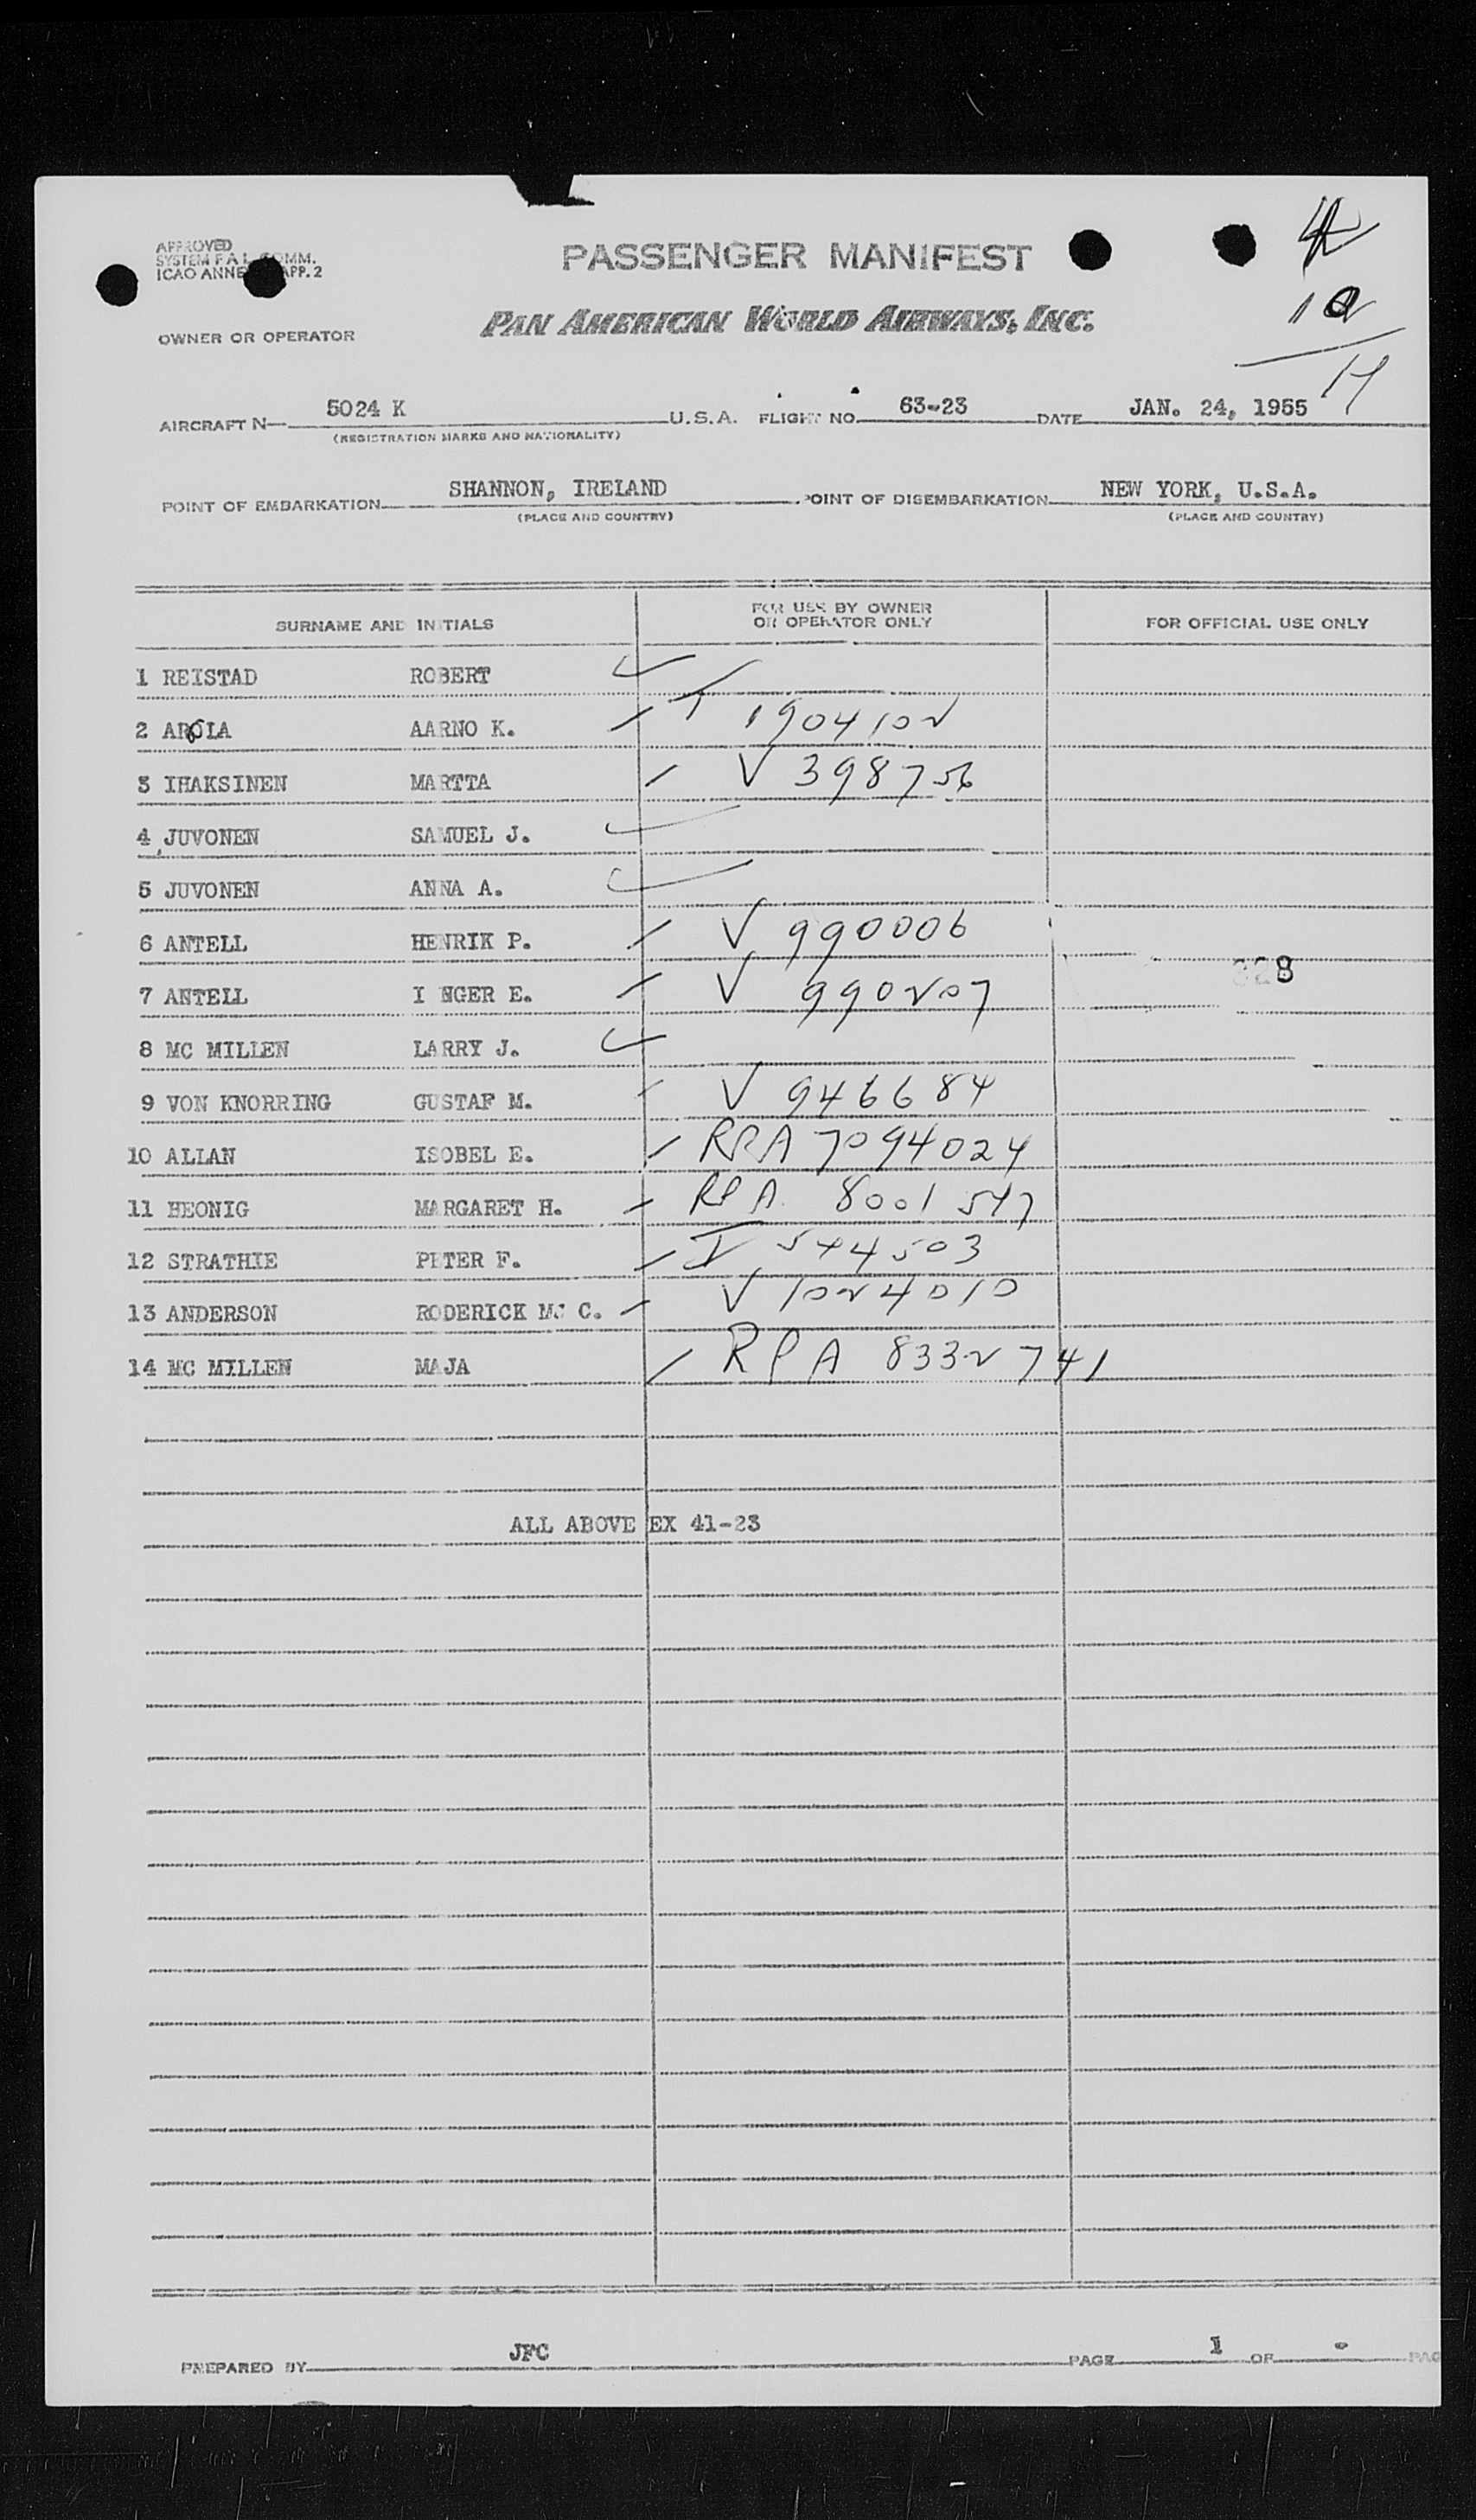 APPROVED
SYSTEM F A L COMM.
ICAO ANNE APP. 2
PASSENGER MANIFEST
4
10
14
OWNER OR OPERATOR
PAN AMERICAN WORLD AIRWAYS, INC.
AIRCRAFT N— 5024 K U.S.A. FLIGHT NO. 63-23 DATE JAN. 24, 1955
(REGISTRATION MARKS AND NATIONALITY)
POINT OF EMBARKATION SHANNON, IRELAND POINT OF DISEMBARKATION NEW YORK, U.S.A.
(PLACE AND COUNTRY) (PLACE AND COUNTRY)
SURNAME AND INITIALS FOR USE BY OWNER OR OPERATOR ONLY FOR OFFICIAL USE ONLY
1 REISTAD ROBERT
2 AROLA AARNO K. I 904102
3 IHAKSINEN MARTTA V 398756
4 JUVONEN SAMUEL J.
5 JUVONEN ANNA A.
6 ANTELL HENRIK P. V 990006
7 ANTELL I NGER E. V 990207
328
8 MC MILLEN LARRY J.
9 VON KNORRING GUSTAF M. V 946684
10 ALLAN ISOBEL E. RPA 7094024
11 HEONIG MARGARET H. RPA 8001547
12 STRATHIE PETER F. I 544503
13 ANDERSON RODERICK MC C. V 1024010
14 MC MILLEN MAJA RPA 8332741
ALL ABOVE EX 41-23
PREPARED BY JFC PAGE 1 OF - PAG